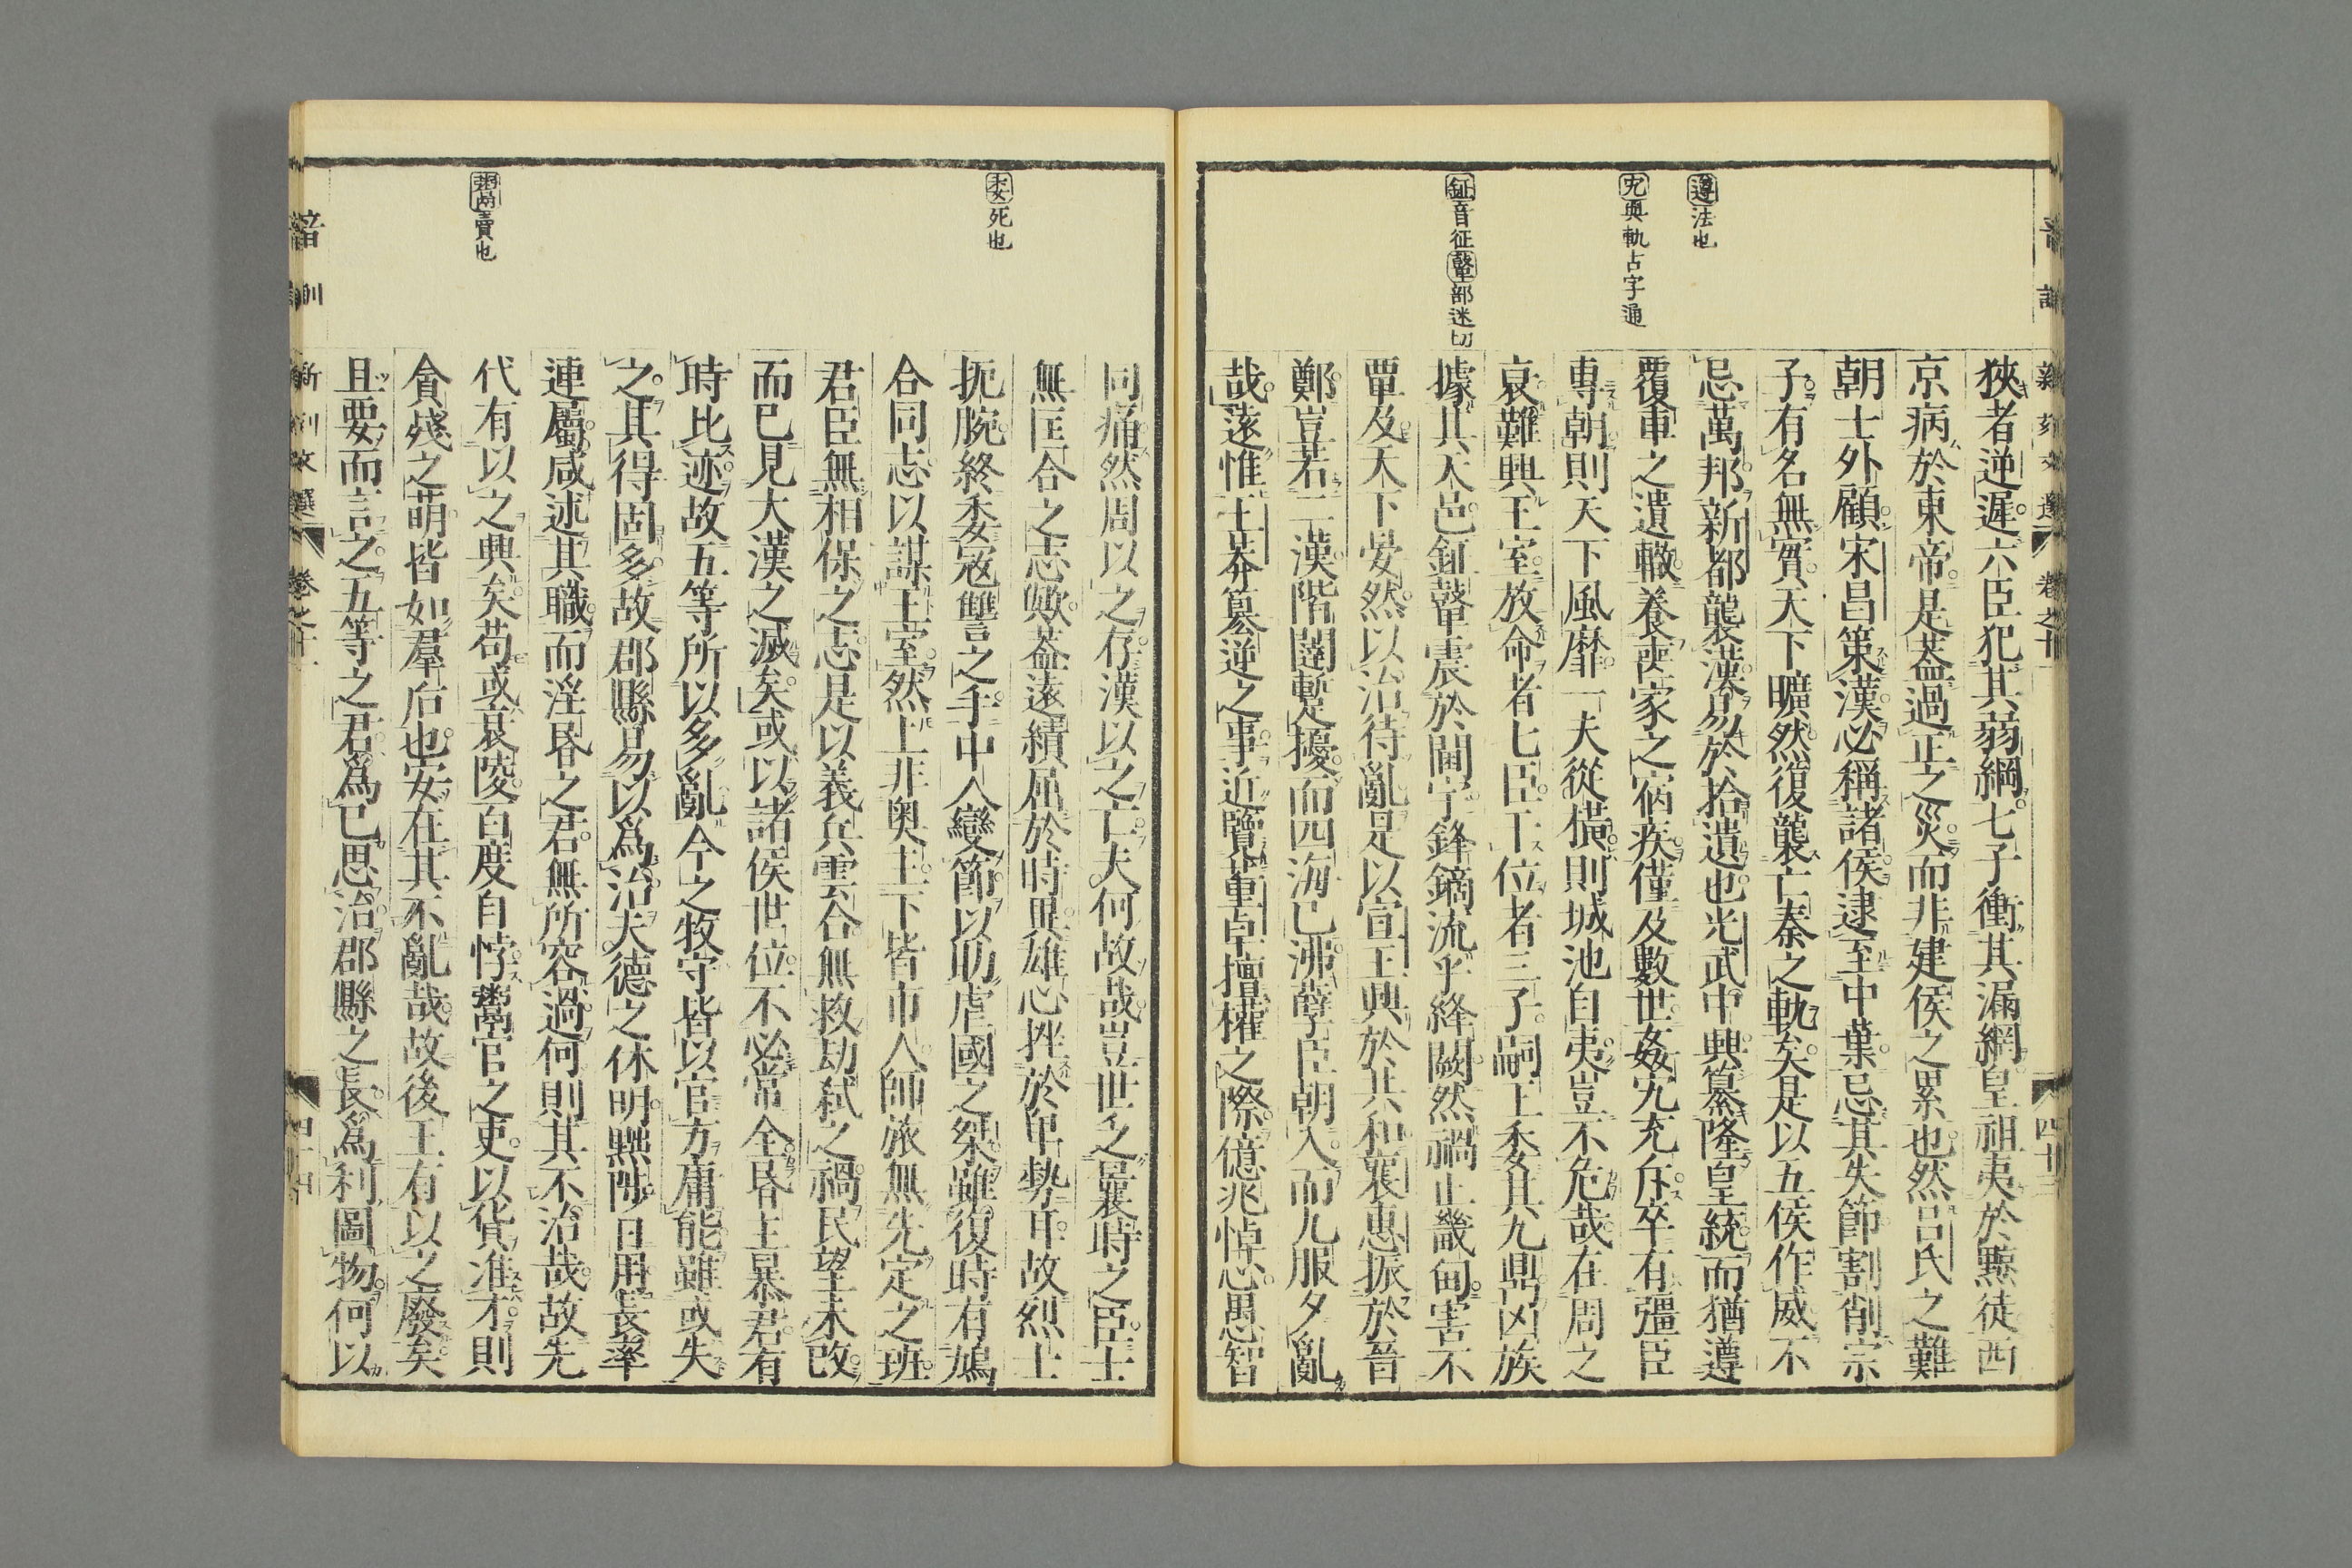 遵法也
宄與軌占字通
鉦音征鼙部迷切
狹者逆遲六臣犯其弱綱七子衝其漏網皇祖夷於黥徒西
京病於東帝是蓋過正之災而非建侯之累也然呂氏之難
朝士外顧宋昌策漢必稱諸侯逮至中葉忌其失節割削宗
子有名無實天下曠然復襲亡秦之軌矣是以五侯作威不
忌萬邦新都襲漢易於拾遺也光武中興纂隆皇統而猶遵
覆車之遺轍養喪家之宿疾僅及數世姦宄充斥卒有彊臣
專朝則天下風靡一夫從橫則城池自夷豈不危哉在周之
衰難興王室放命者七臣干位者三子嗣王委其九鼎凶族
據其天邑鉦鼙震於閫宇鋒鏑流乎絳闕然禍止畿甸害不
覃及天下晏然以治待亂是以宣王興於共和襄惠振於晉
鄭豈若二漢階闥暫擾而四海已沸孽臣朝入而九服夕亂
哉遠惟王莽篡逆之事近覽董卓擅權之際億兆悼心愚智
委死也
粥鬻賣也
同痛然周以之存漢以之亡夫何故哉豈世乏曩時之臣士
無匡合之志歟蓋遠績屈於時異雄心挫於卑勢耳故烈士
扼腕終委寇讐之手中人變節以助虐國之桀雖復時有鳩
合同志以謀王室然上非奧主下皆市人師旅無先定之班
君臣無相保之志是以義兵雲合無救劫弑之禍民望未改
而已見大漢之滅矣或以諸侯世位不必常全昏主暴君有
時比迹故五等所以多亂今之牧守皆以官方庸能雖或失
之其得固多故郡縣易以爲治夫德之休明黜陟日用長率
連屬咸述其職而淫昏之君無所容過何則其不治哉故先
代有以之興矣苟或衰陵百度自悖鬻官之吏以貨准才則
貪殘之萌皆如羣后也安在其不亂哉故後王有以之廢矣
且要而言之五等之君爲己思治郡縣之長爲利圖物何以